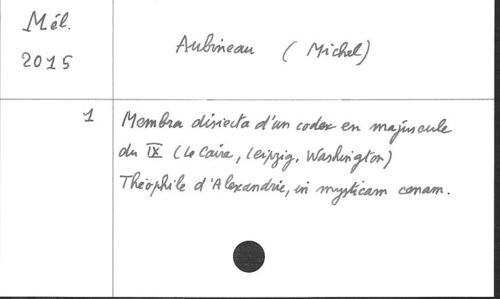 Mél.
2015
Aubineau ( Michel)
1
Membra disiecta d'un codex en majuscule
du IX (Le Caire, Leipzig, Washington)
Théophile d'Alexandrie, in mysticam cenam.